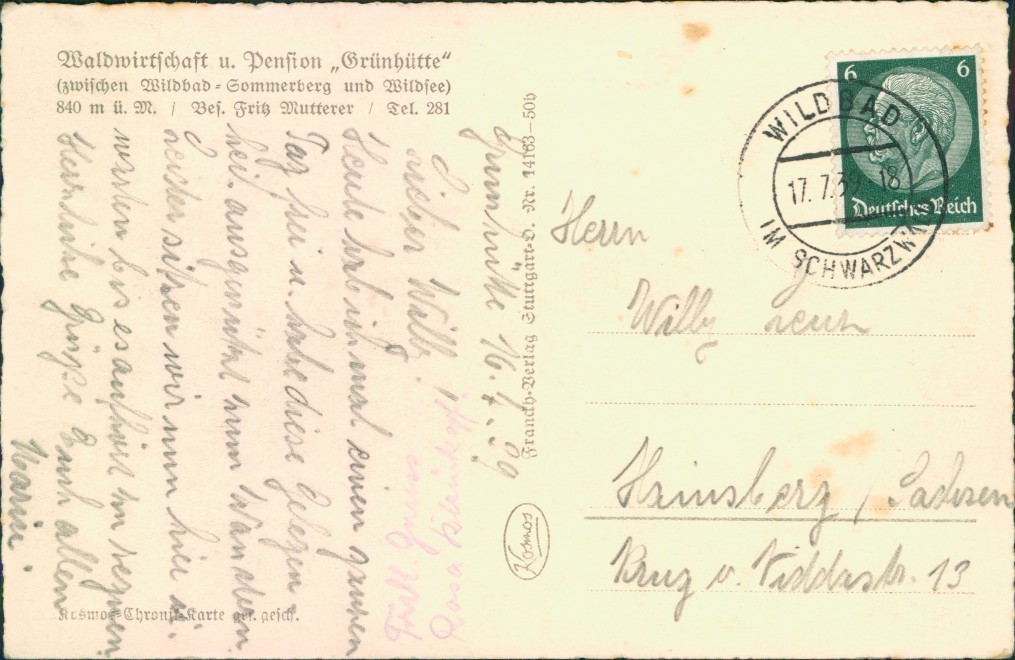 Waldwirtschaft u. Pension „Grünhütte“
(zwischen Wildbad-Sommerberg und Wildsee)
840 m ü. M. / Bes. Fritz Mutterer / Tel. 281
Grünhütte 16.7.39
Lieber Willy!
Heute hab ich mal einen ganzen
Tag frei u. habe diese Gelegen
heit ausgenützt zum Wandern.
Leider sitzen wir nun hier u.
warten bis es aufhört zu regnen.
Herzliche Grüße Euch allen
Maria.
Frdl. Gruss
Rosa
Kosmos-Chronik-Karte ges. gesch.
Franckh-Verlag Stuttgart-O. Nr. 14163—50b
Kosmos
6 6
Deutsches Reich
WILDBAD
17. 7.39 18
IM SCHWARZW
Herrn
Willy
Hainsberg / Sachsen
str. 13